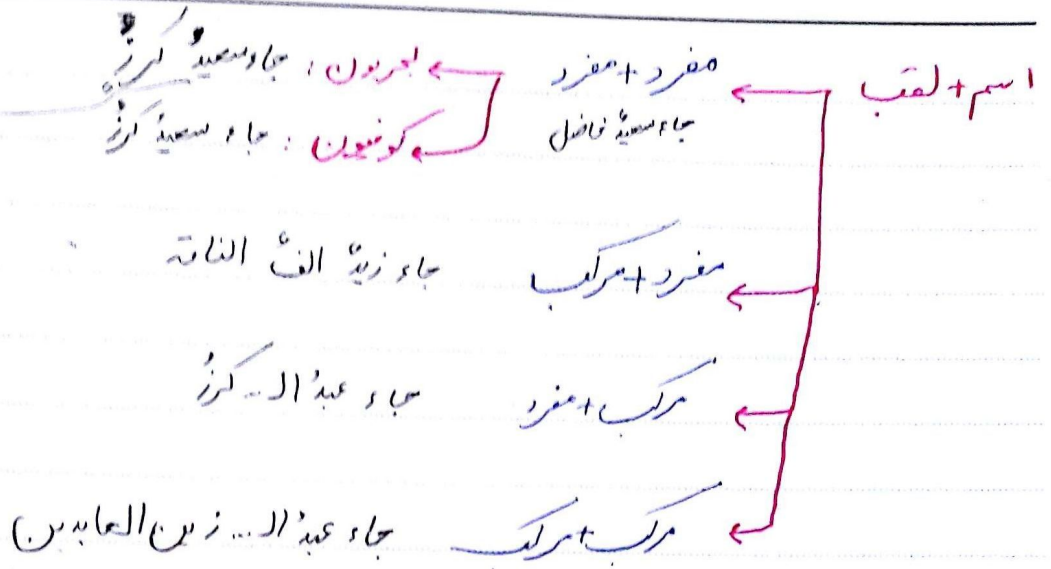 اسم + لقب
مفرد + مفرد
جاء سعیدٌ فاضل
بصریون : جاء سعیدُ کرزٍ
کوفیون : جاء سعیدٌ کرزٌ
مفرد + مرکب جاء زیدٌ انفُ الناقه
مرکب + مفرد جاء عبدُ الـ... کرزٌ
مرکب + مرکب جاء عبدُ الـ... زین العابدین